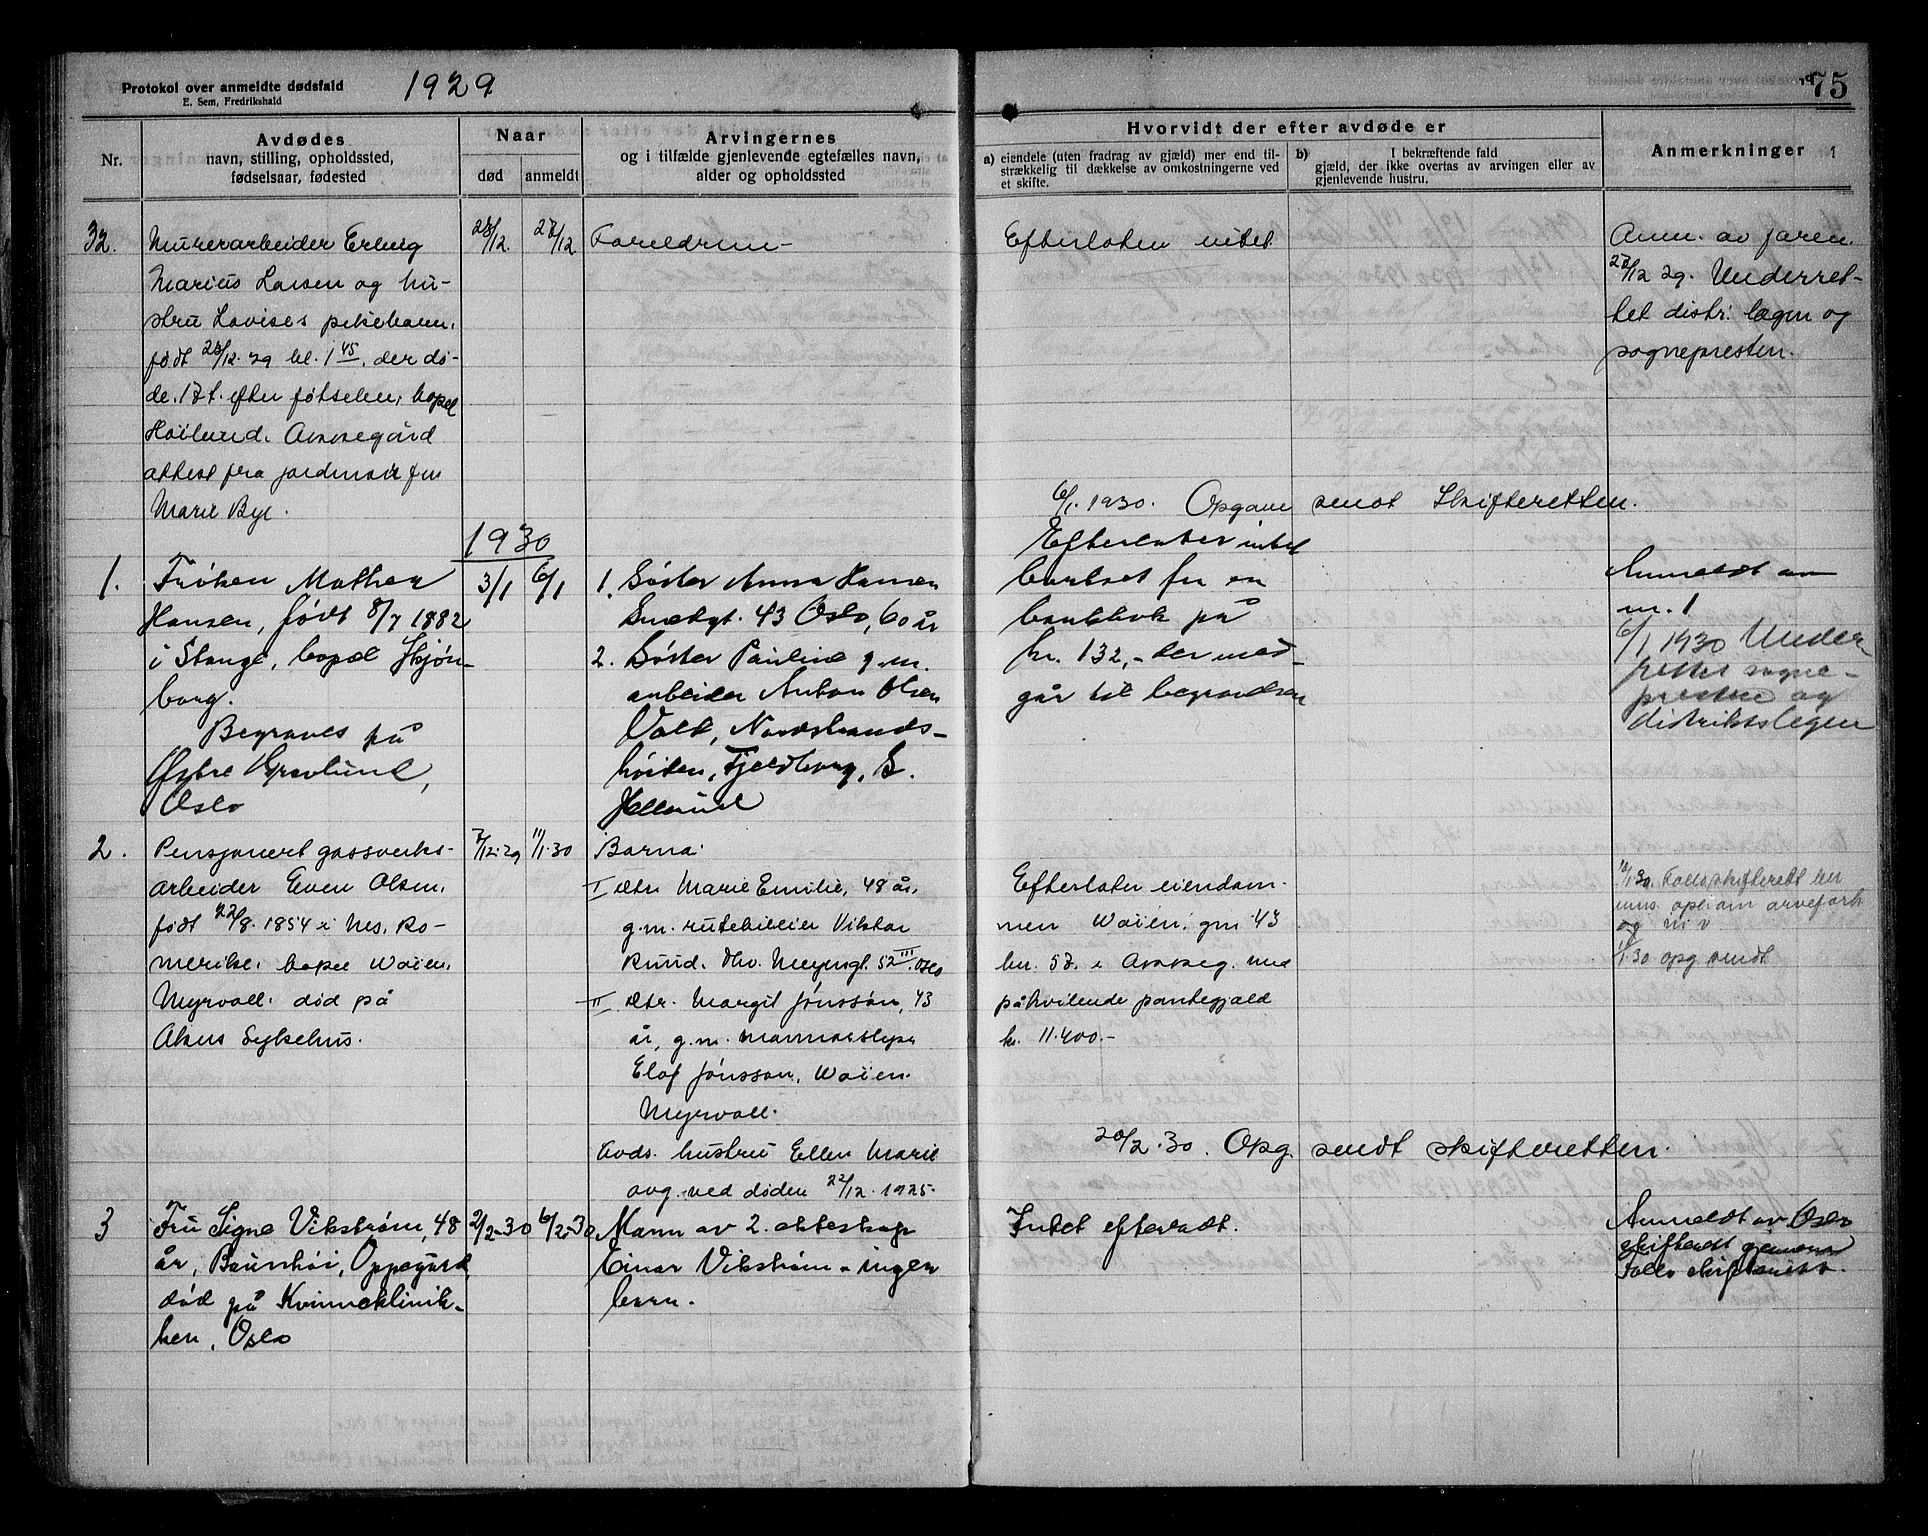 Protokol over anmeldte dødsfald
E. Sem, Fredrikshald
1929
75
Nr.
Avdødes
navn, stilling, opholdssted,
fødselsaar, fødested
Naar
død
anmeldt
Arvingernes
og i tilfælde gjenlevende egtefælles navn,
alder og opholdssted
Hvorvidt der efter avdøde er
a) eiendele (uten fradrag av gjæld) mer end til-
strækkelig til dækkelse av omkostningerne ved
et skifte.
b) I bekræftende fald
gjæld, der ikke overtas av arvingen eller av
gjenlevende hustru.
Anmerkninger
32.
Murerarbeider Erling
Marius Larsen og hu-
stru Lovises pikebarn,
født 23/12.29 kl. 1 45, der dø-
de. 17 t. efter fødselen, bopel
Høilund. Oppegård
attest fra jordmor fru
Marie Bye.
23/12.
27/12
Foreldrene
Efterlaten intet
Anm. av faren
27/12 29. Underret-
tet distr. lægen og
sognepresten.
6/1.1930. Opgave sendt Skifteretten.
1930
1.
Frøken Mathea
Hansen, født 8/7 1882
i Stange, bopel Hjøn-
borg.
Begraves på
Østre Gravlund,
Oslo
3/1
6/1
1. Søster Anna Hansen
Smedgt. 43 Oslo, 60 år
2. Søster Pauline g.m.
arbeider Anton Olsen
Volt, Nordstrands-
høiden, Fjeldborg, S.
Efterlater intet
bortset fra en
bankbok på
kr. 132,- der med-
går til begravelsen
Anmeldt av
nr. 1
6/1 1930 Under
rettet sogne-
presten og
distriktslegen
2.
Pensjonert gassverks-
arbeider Even Olsen,
født 22/8.1854 i Nes, Ro-
merike, bopel Woien,
Myrvoll. død på
Akers Sykehus.
7/12.29
11/1.30
Barna:
I dtr. Marie Emilie, 48 år,
g.m. rutebileier Viktor
Ruud. Thv. Meyersgt. 52 III Oslo
II dtr. Margit Jónsson, 43
år, g.m. marmorsliper
Elof Jónsson, Woien.
Myrvoll.
Avds. hustru Ellen Marie
avg. ved døden 22/12.1925.
Efterlater eiendom-
men Woien, gnr 43
bnr. 57. i Oppeg. med
påhvilende pantegjæld
kr. 11.400.-
1.30. Folloskifterett har
opl. om arveforh
og
1.30 opg. sendt
20/2.30. Opg. sendt skifteretten.
3
Fru Signe Vikstrøm, 48
år, Baunhøi, Oppegård,
død på Kvinneklinik-
ken, Oslo
2/2-30
6/2-30
Mann av 2. ekteskap
Einar Vikstrøm - ingen
barn.
Intet efterladt.
Anmeldt av Oslo
skifterett gjennem
Follo skifterett.